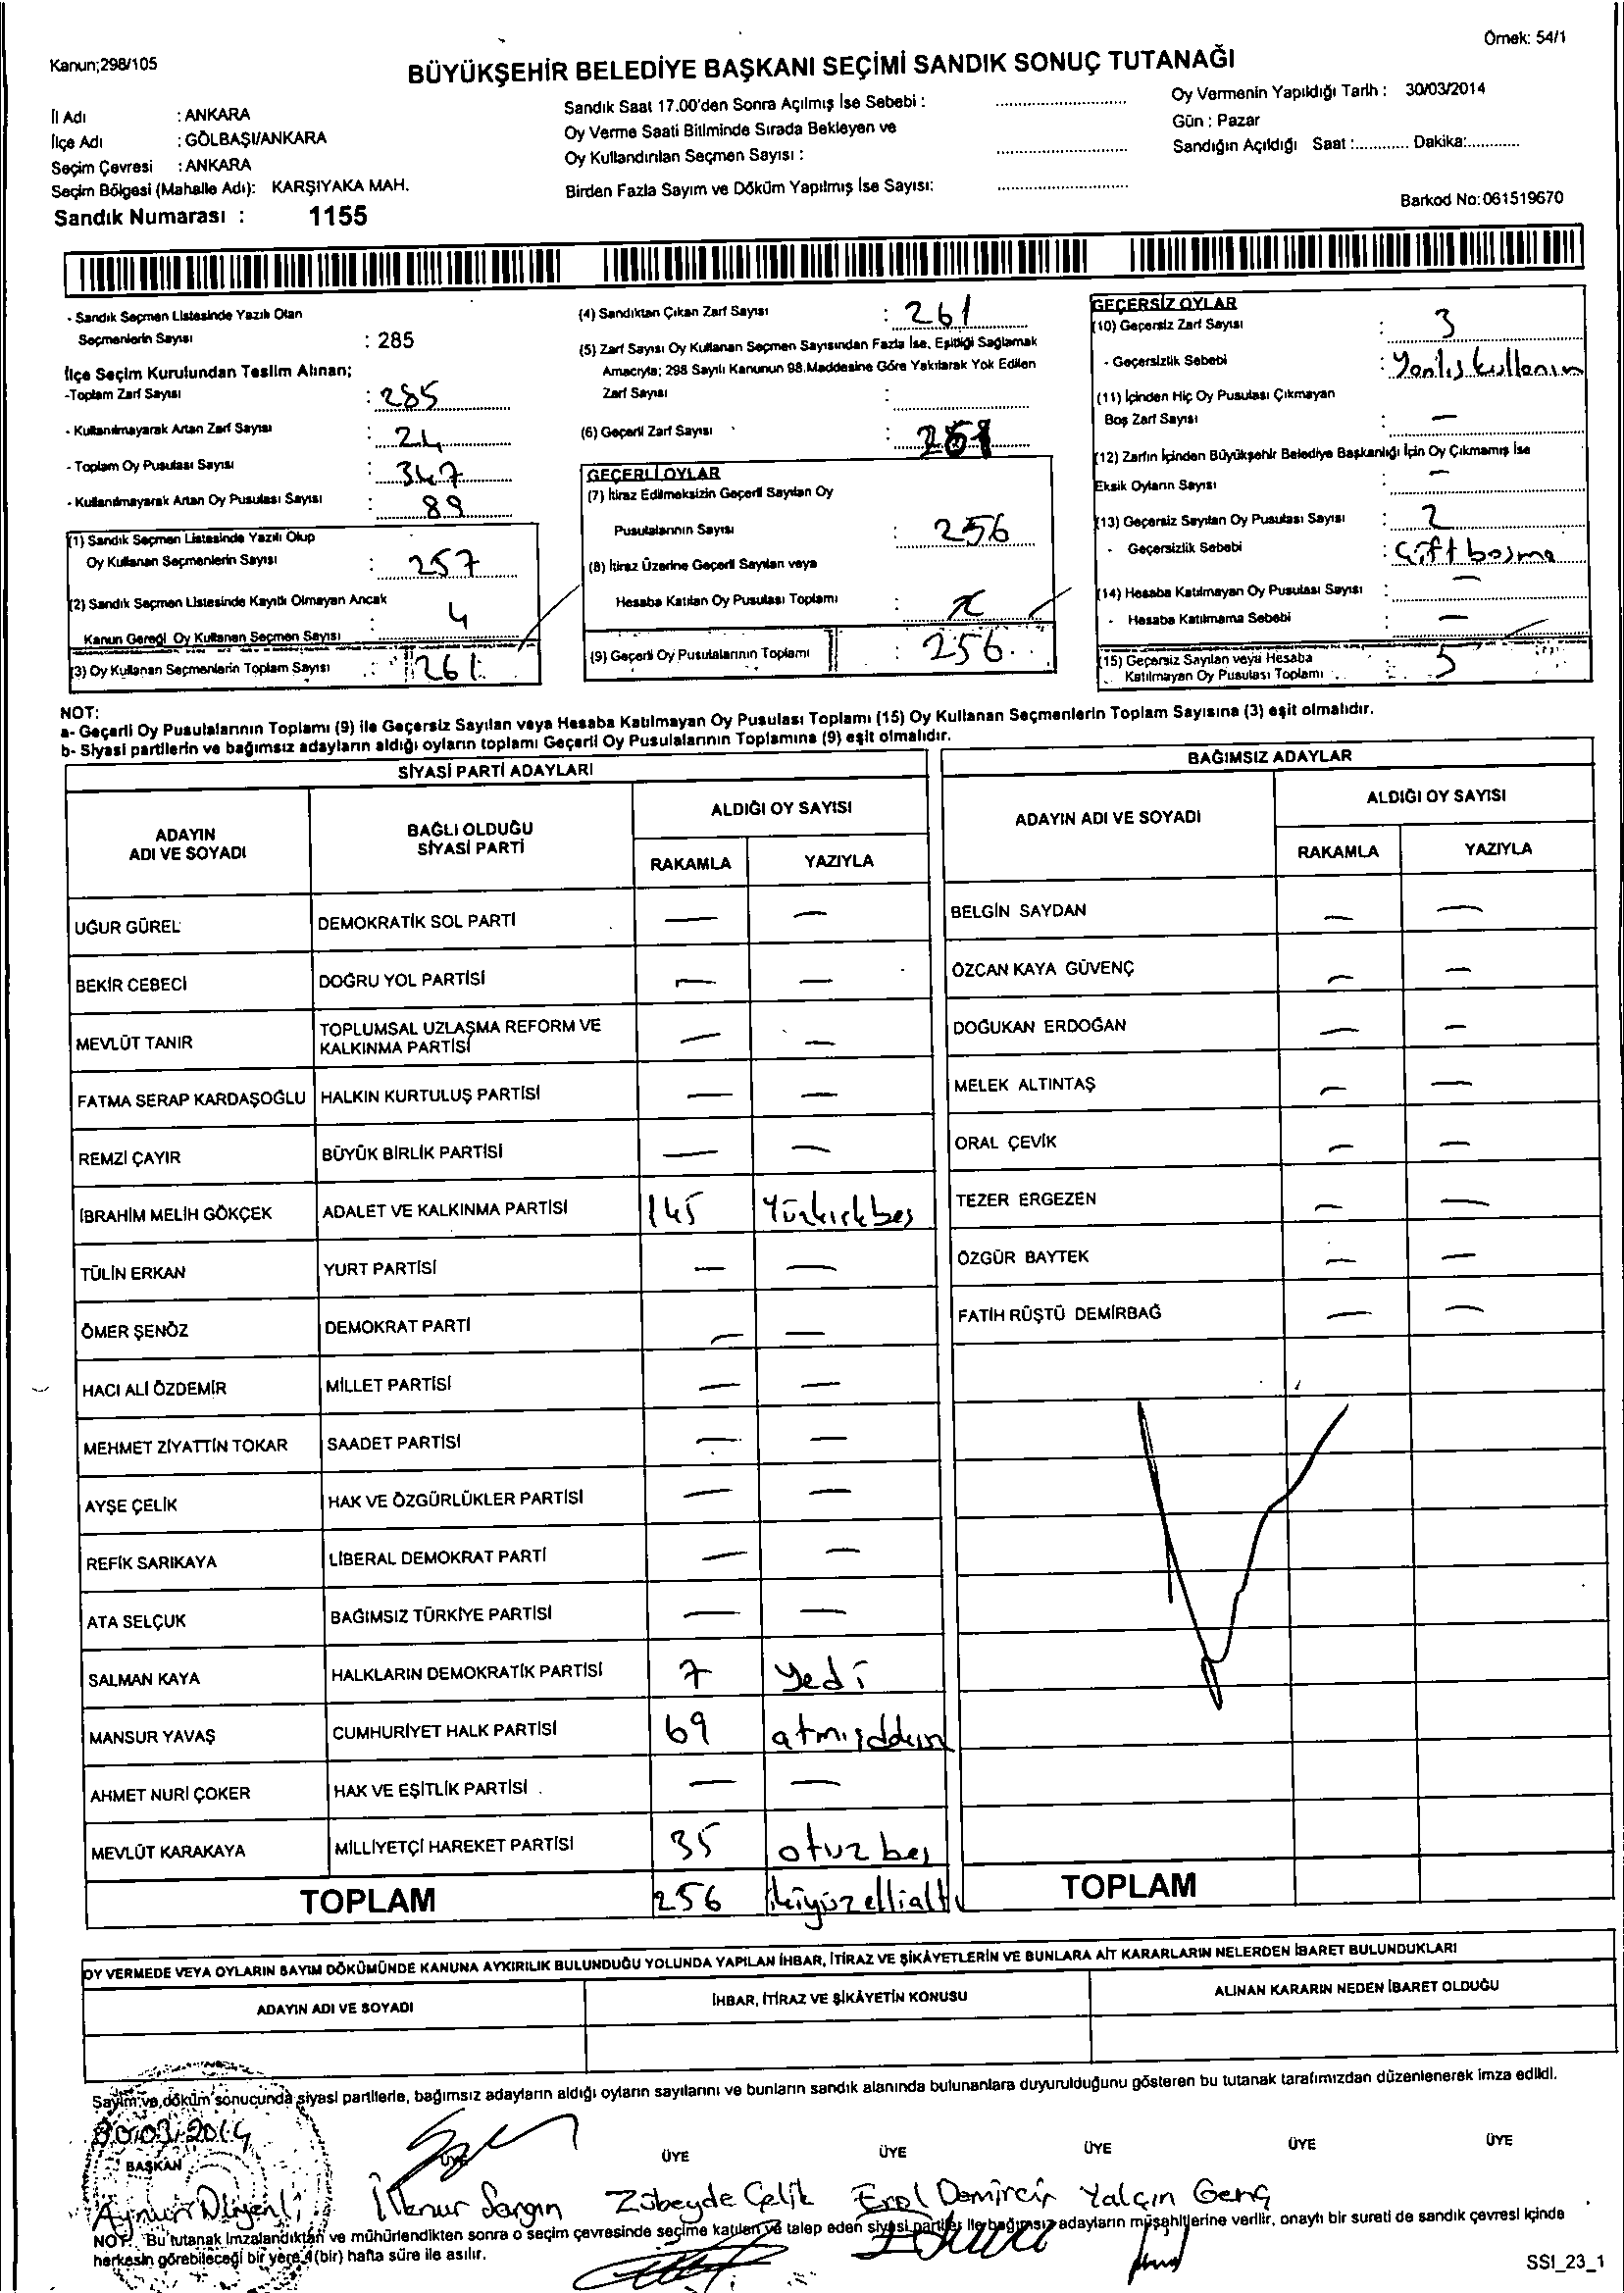 Örnek: 54/1
Kanun;298/105
BÜYÜKŞEHİR BELEDİYE BAŞKANI SEÇİMİ SANDIK SONUÇ TUTANAĞI
İl Adı : ANKARA
İlçe Adı : GÖLBAŞI/ANKARA
Seçim Çevresi : ANKARA
Seçim Bölgesi (Mahalle Adı): KARŞIYAKA MAH.
Sandık Numarası : 1155
Sandık Saat 17.00'den Sonra Açılmış İse Sebebi :
Oy Verme Saati Bitiminde Sırada Bekleyen ve
Oy Kullandırılan Seçmen Sayısı :
Birden Fazla Sayım ve Döküm Yapılmış İse Sayısı:
Oy Vermenin Yapıldığı Tarih : 30/03/2014
Gün : Pazar
Sandığın Açıldığı Saat :............ Dakika:............
Barkod No:061519670
- Sandık Seçmen Listesinde Yazılı Olan
Seçmenlerin Sayısı : 285
İlçe Seçim Kurulundan Teslim Alınan;
-Toplam Zarf Sayısı : 285
- Kullanılmayarak Artan Zarf Sayısı : 24
- Toplam Oy Pusulası Sayısı : 347
- Kullanılmayarak Artan Oy Pusulası Sayısı : 89
(1) Sandık Seçmen Listesinde Yazılı Olup
Oy Kullanan Seçmenlerin Sayısı : 257
(2) Sandık Seçmen Listesinde Kayıtlı Olmayan Ancak
Kanun Gereği Oy Kullanan Seçmen Sayısı : 4
(3) Oy Kullanan Seçmenlerin Toplam Sayısı : 261
(4) Sandıktan Çıkan Zarf Sayısı : 261
(5) Zarf Sayısı Oy Kullanan Seçmen Sayısından Fazla İse, Eşitliği Sağlamak
Amacıyla; 298 Sayılı Kanunun 98.Maddesine Göre Yakılarak Yok Edilen
Zarf Sayısı :
(6) Geçerli Zarf Sayısı :
GEÇERLİ OYLAR
(7) İtiraz Edilmeksizin Geçerli Sayılan Oy
Pusulalarının Sayısı : 256
(8) İtiraz Üzerine Geçerli Sayılan veya
Hesaba Katılan Oy Pusulası Toplamı :
(9) Geçerli Oy Pusulalarının Toplamı : 256
GEÇERSİZ OYLAR
(10) Geçersiz Zarf Sayısı : 3
- Geçersizlik Sebebi : Yanlış kullanım
(11) İçinden Hiç Oy Pusulası Çıkmayan
Boş Zarf Sayısı : —
(12) Zarfın İçinden Büyükşehir Belediye Başkanlığı İçin Oy Çıkmamış İse
Eksik Oyların Sayısı : —
(13) Geçersiz Sayılan Oy Pusulası Sayısı : 2
- Geçersizlik Sebebi : Çift basma
(14) Hesaba Katılmayan Oy Pusulası Sayısı : —
- Hesaba Katılmama Sebebi : —
(15) Geçersiz Sayılan veya Hesaba
Katılmayan Oy Pusulası Toplamı : 5
NOT:
a- Geçerli Oy Pusulalarının Toplamı (9) ile Geçersiz Sayılan veya Hesaba Katılmayan Oy Pusulası Toplamı (15) Oy Kullanan Seçmenlerin Toplam Sayısına (3) eşit olmalıdır.
b- Siyasi partilerin ve bağımsız adayların aldığı oyların toplamı Geçerli Oy Pusulalarının Toplamına (9) eşit olmalıdır.
SİYASİ PARTİ ADAYLARI
ADAYIN ADI VE SOYADI
BAĞLI OLDUĞU SİYASİ PARTİ
ALDIĞI OY SAYISI
RAKAMLA YAZIYLA
UĞUR GÜREL DEMOKRATİK SOL PARTİ — —
BEKİR CEBECİ DOĞRU YOL PARTİSİ — —
MEVLÜT TANIR TOPLUMSAL UZLAŞMA REFORM VE KALKINMA PARTİSİ — —
FATMA SERAP KARDAŞOĞLU HALKIN KURTULUŞ PARTİSİ — —
REMZİ ÇAYIR BÜYÜK BİRLİK PARTİSİ — —
İBRAHİM MELİH GÖKÇEK ADALET VE KALKINMA PARTİSİ 145 Yüzkırkbeş
TÜLİN ERKAN YURT PARTİSİ — —
ÖMER ŞENÖZ DEMOKRAT PARTİ — —
HACI ALİ ÖZDEMİR MİLLET PARTİSİ — —
MEHMET ZİYATTİN TOKAR SAADET PARTİSİ — —
AYŞE ÇELİK HAK VE ÖZGÜRLÜKLER PARTİSİ — —
REFİK SARIKAYA LİBERAL DEMOKRAT PARTİ — —
ATA SELÇUK BAĞIMSIZ TÜRKİYE PARTİSİ — —
SALMAN KAYA HALKLARIN DEMOKRATİK PARTİSİ 7 yedi
MANSUR YAVAŞ CUMHURİYET HALK PARTİSİ 69
AHMET NURİ ÇOKER HAK VE EŞİTLİK PARTİSİ — —
MEVLÜT KARAKAYA MİLLİYETÇİ HAREKET PARTİSİ 35 otuzbeş
TOPLAM 256 ikiyüzellialtı
BAĞIMSIZ ADAYLAR
ADAYIN ADI VE SOYADI
ALDIĞI OY SAYISI
RAKAMLA YAZIYLA
BELGİN SAYDAN — —
ÖZCAN KAYA GÜVENÇ — —
DOĞUKAN ERDOĞAN — —
MELEK ALTINTAŞ — —
ORAL ÇEVİK — —
TEZER ERGEZEN — —
ÖZGÜR BAYTEK — —
FATİH RÜŞTÜ DEMİRBAĞ — —
TOPLAM
OY VERMEDE VEYA OYLARIN SAYIM DÖKÜMÜNDE KANUNA AYKIRILIK BULUNDUĞU YOLUNDA YAPILAN İHBAR, İTİRAZ VE ŞİKÂYETLERİN VE BUNLARA AİT KARARLARIN NELERDEN İBARET BULUNDUKLARI
ADAYIN ADI VE SOYADI
İHBAR, İTİRAZ VE ŞİKÂYETİN KONUSU
ALINAN KARARIN NEDEN İBARET OLDUĞU
Sayım ve döküm sonucunda siyasi partilerle, bağımsız adayların aldığı oyların sayılarını ve bunların sandık alanında bulunanlara duyurulduğunu gösteren bu tutanak tarafımızdan düzenlenerek imza edildi.
30.03.2014
BAŞKAN ÜYE ÜYE ÜYE ÜYE ÜYE
İlknur Sargın Zübeyde Çelik Erol Demircir Yalçın Genç
NOT: Bu tutanak imzalandıktan ve mühürlendikten sonra o seçim çevresinde seçime katılan ve talep eden siyasi partiler ile bağımsız adayların müşahitlerine verilir, onaylı bir sureti de sandık çevresi içinde
herkesin görebileceği bir yere 1(bir) hafta süre ile asılır.
SSI_23_1